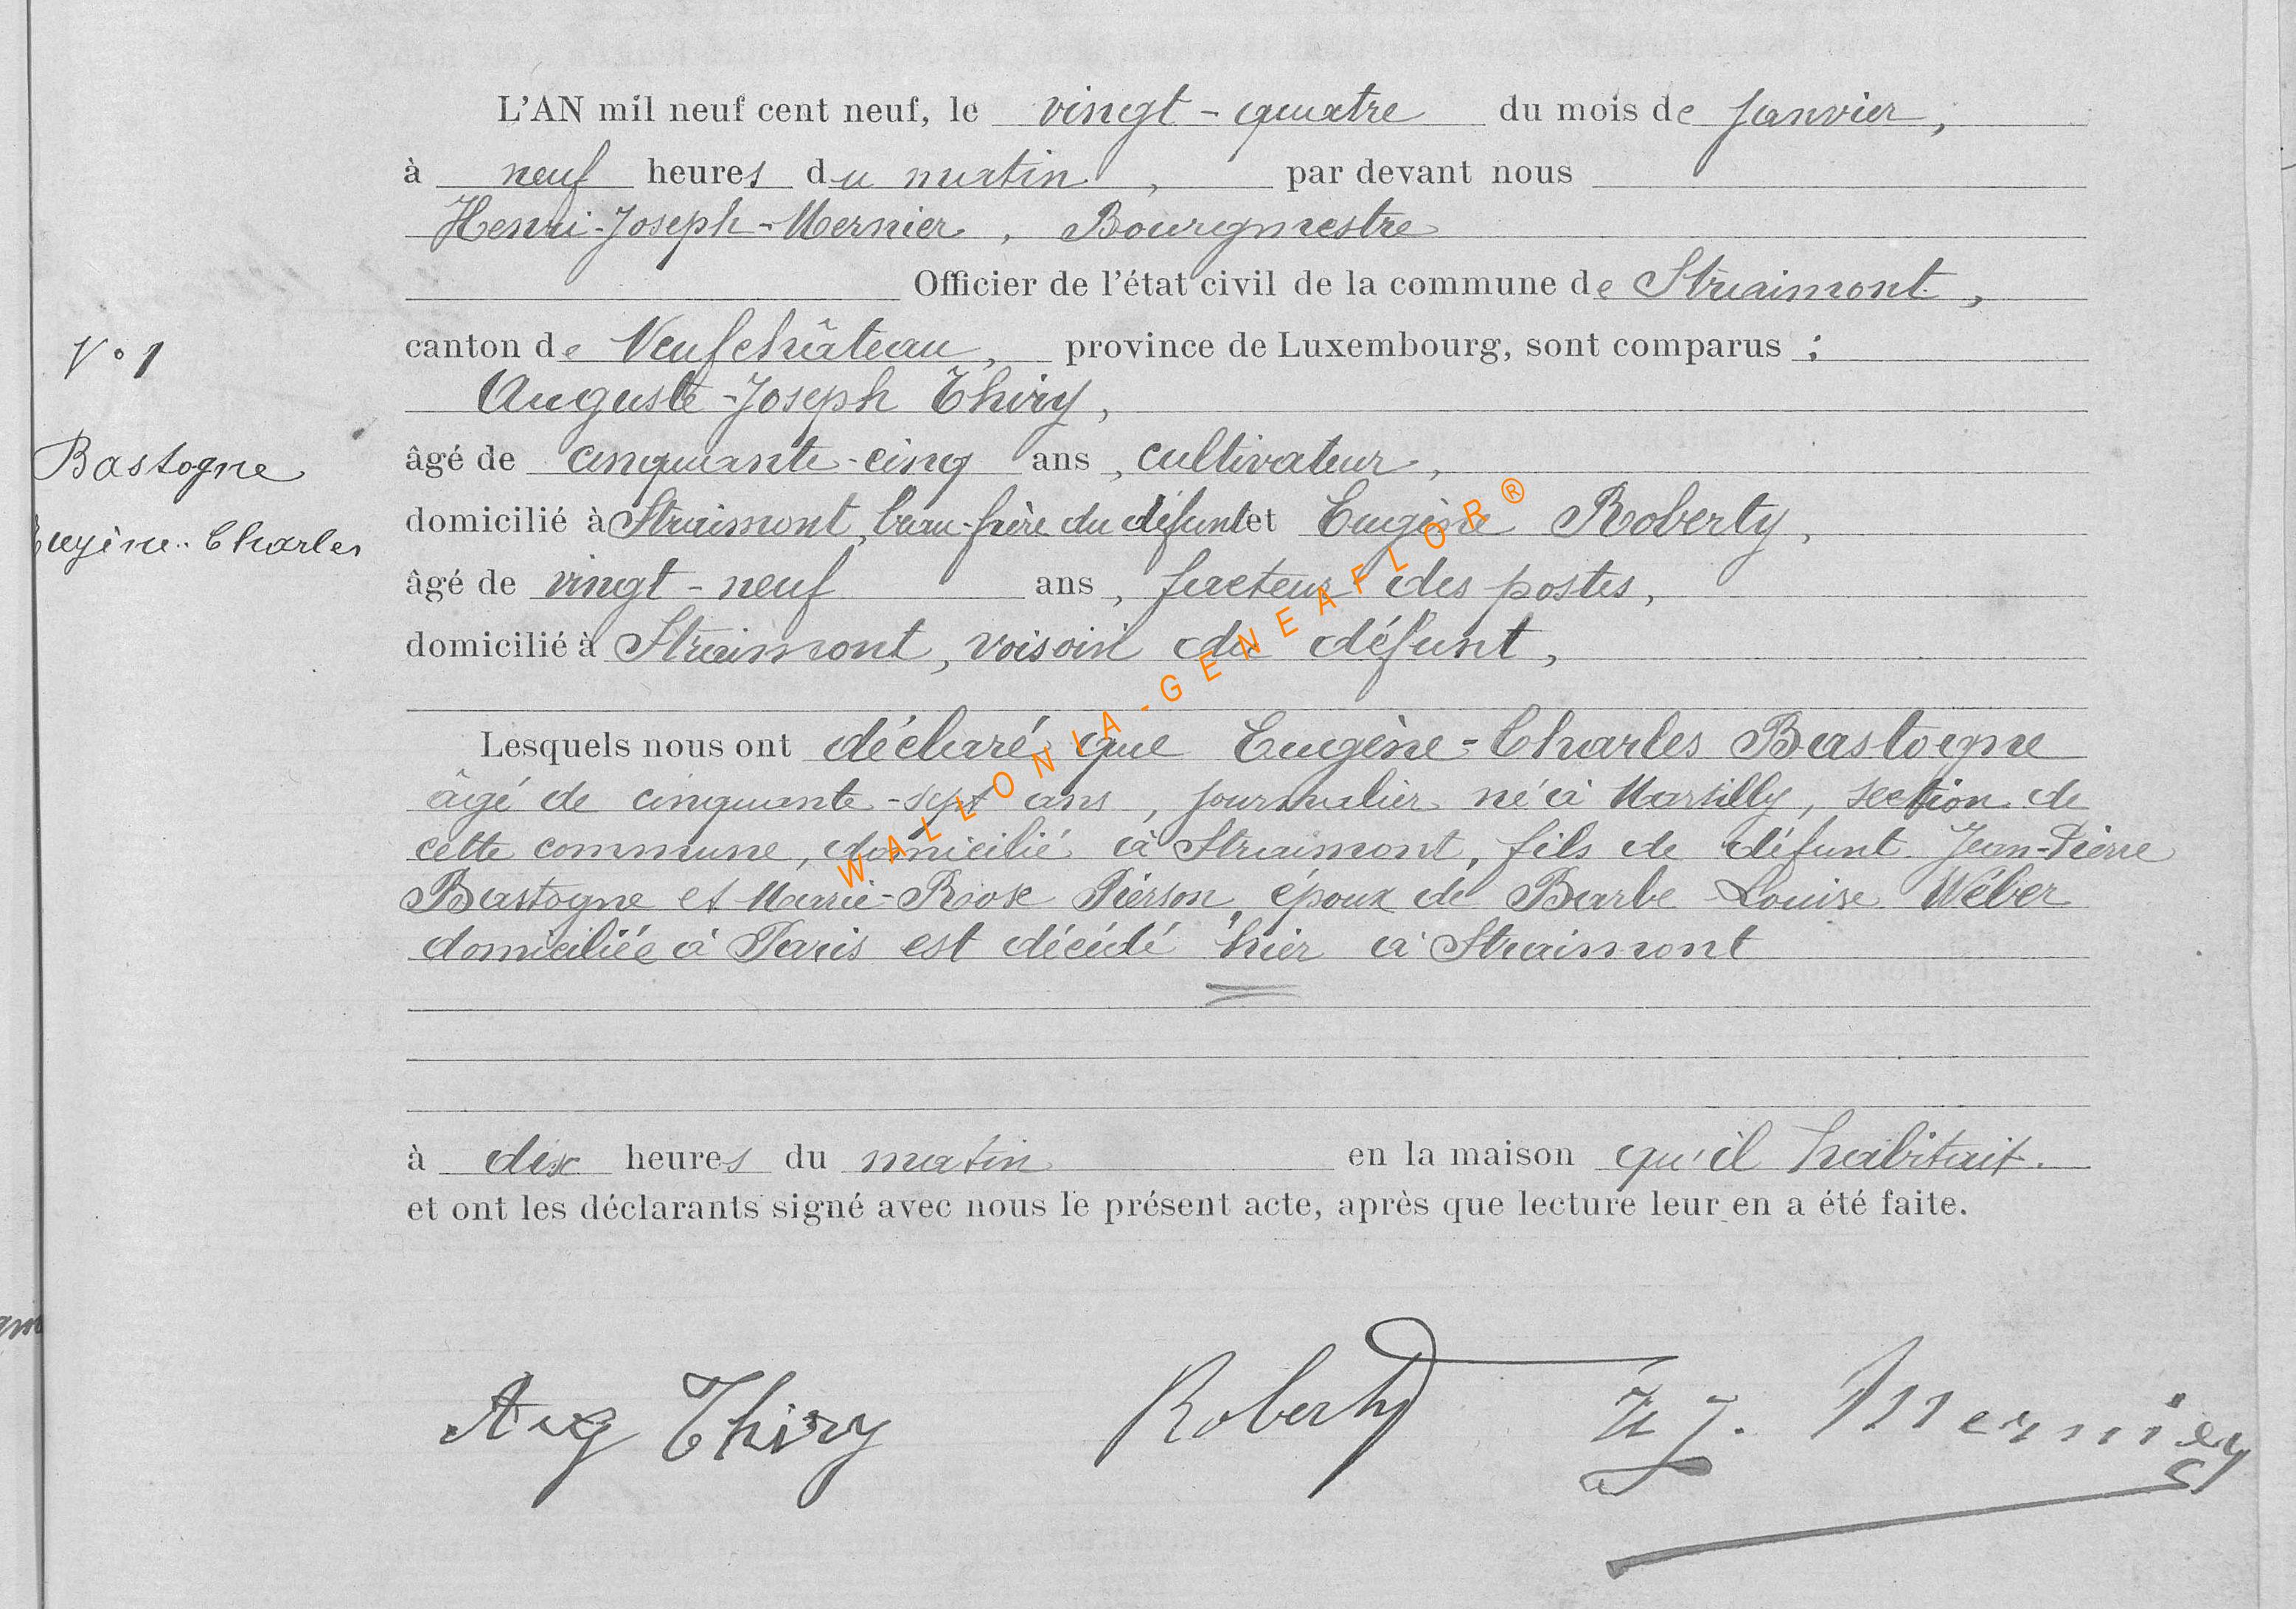 L'AN mil neuf cent neuf, le vingt-quatre du mois de Janvier,
à neuf heures du matin, par devant nous
Henri-Joseph-Mernier, Bourgmestre
Officier de l'état civil de la commune de Straimont,
N° 1
canton de Neufchâteau, province de Luxembourg, sont comparus :
Auguste-Joseph Thiry,
Bastogne
âgé de cinquante-cinq ans, cultivateur,
domicilié à Straimont, beau-frère du défunt et Eugène Roberty,
Eugène-Charles
âgé de vingt-neuf ans, facteur des postes,
domicilié à Straimont, voisoin du défunt,
Lesquels nous ont déclaré que Eugène-Charles Bastogne
âgé de cinquante-sept ans, journalier né à Martilly, section de
cette commune, domicilié à Straimont, fils de défunt Jean-Pierre
Bastogne et Marie-Rose Pierson, époux de Barbe Louise Wéber
domiciliée à Paris est décédé hier à Straimont
à dix heures du matin en la maison qu'il habitait.
et ont les déclarants signé avec nous le présent acte, après que lecture leur en a été faite.
Aug Thiry Roberty H J. Mernier
WALLONIA-GENEAFLOR®